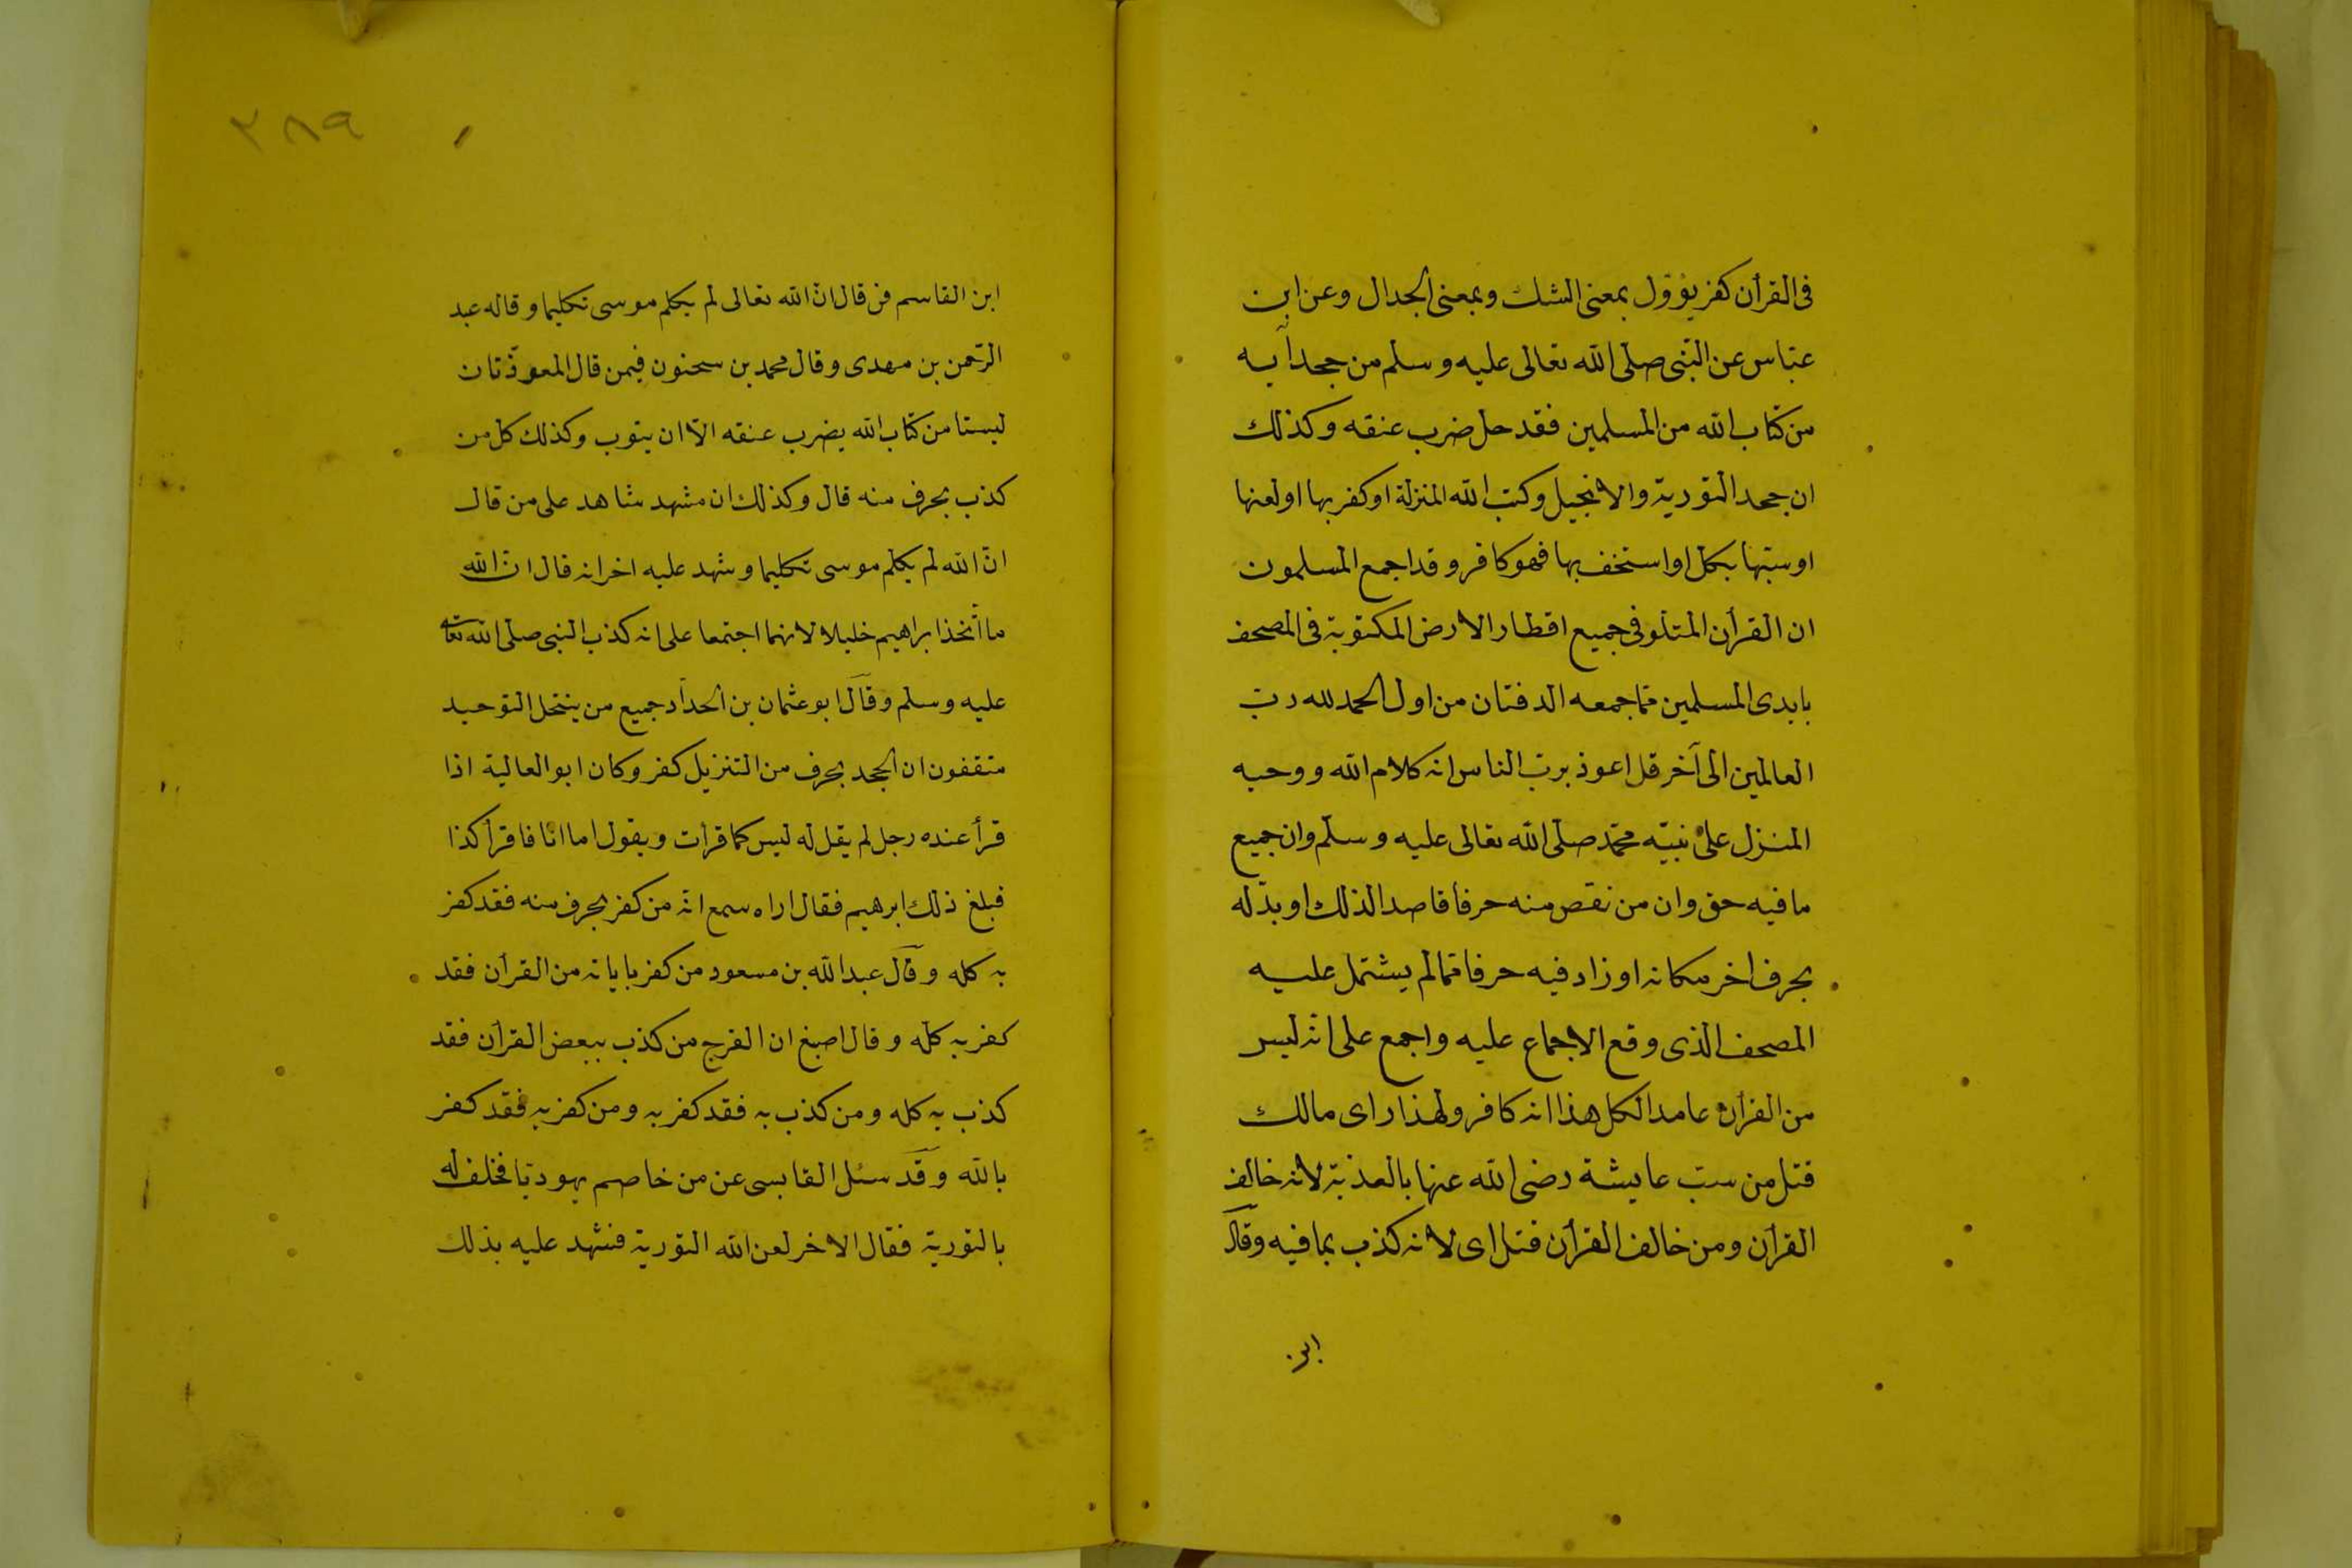 فى القرأن كفر يؤوّل بمعنى الشك وبمعنى الجدال وعن ابن
عبّاس عن النّبى صلى الله تعالى عليه وسلم من جحد آية
من كتاب الله من المسلمين فقد حل ضرب عنقه وكذلك
ان جحد التورية والانجيل وكتب الله المنزلة او كفر بها او لعنها
او سبّها بكل او استخف بها فهو كافر وقد اجمع المسلمون
ان القرأن المتلو فى جميع اقطار الارض المكتوبة فى المصحف
بايدى المسلمين ممّا جمعه الدفتان من اول الحمد لله ربّ
العالمين الى آخر قل اعوذ بربّ الناس انه كلام الله ووحيه
المنزل على نبيّه محمّد صلّى الله تعالى عليه وسلّم وان جميع
ما فيه حق وان من نقص منه حرفا قاصدا لذلك او بدّله
بحرف اخر مكانه او زاد فيه حرفا ممّا لم يشتمل عليه
المصحف الذى وقع الاجماع عليه واجمع على انّه ليس
من القرأن عامدا لكل هذا انه كافر ولهذا راى مالك
قتل من سبّ عايشة رضى الله عنها بالعذبة لانه خالف
القرأن ومن خالف القرأن قتل اى لانه كذب بما فيه وقال
ابن
٣٨٩
ابن القاسم من قال انّ الله تعالى لم يكلم موسى تكليما وقاله عبد
الرّحمن بن مهدى وقال محمد بن سحنون فيمن قال المعوّذتان
ليستا من كتاب الله يضرب عنقه الّا ان يتوب وكذلك كل من
كذب بحرف منه قال وكذلك ان شهد شاهد على من قال
انّ الله لم يكلم موسى تكليما وشهد عليه اخر انه قال انّ الله
ما أتخذ ابراهيم خليلا لانهما اجتمعا على انه كذب النبى صلى الله تعالى
عليه وسلم وقال ابو عثمان بن الحداد جميع من ينتحل التوحيد
متقفون ان الجحد بحرف من التنزيل كفر وكان ابو العالية اذا
قرأ عنده رجل لم يقل له ليس كما قرأت ويقول اما انا فاقرأ كذا
فبلغ ذلك ابرهيم فقال اراه سمع انّه من كفر بحرف منه فقد كفر
به كله وقال عبد الله بن مسعود من كفر باياته من القرأن فقد
كفر به كلّه وقال اصبغ ان الفرج من كذب ببعض القرأن فقد
كذب به كله ومن كذب به فقد كفر به ومن كفر به فقد كفر
بالله وقد سئل القابسى عن من خاصم يهوديّا فحلف له
بالتورية فقال الاخر لعن الله التورية فشهد عليه بذلك